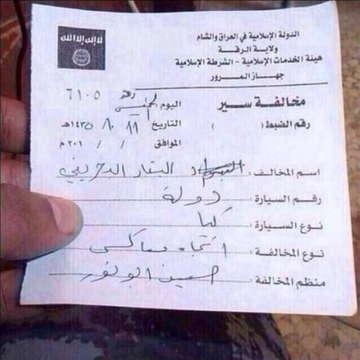 لا إله إلا الله
الدولة الإسلامية في العراق والشام
ولاية الرقة
هيئة الخدمات الإسلامية - الشرطة الإسلامية
جهاز المرور
مخالفة سير
رقم ٦١٠٥
رقم الضبط: ( )
اليوم الخميس
التاريخ ١١ / ٨ / ١٤٣٥هـ
الموافق / / ٢٠١ م
اسم المخالف: البتار البحريني
رقم السيارة: دولة
نوع السيارة: كيا
نوع المخالفة: اتجاه معاكس
منظم المخالفة: حسين ابو نور